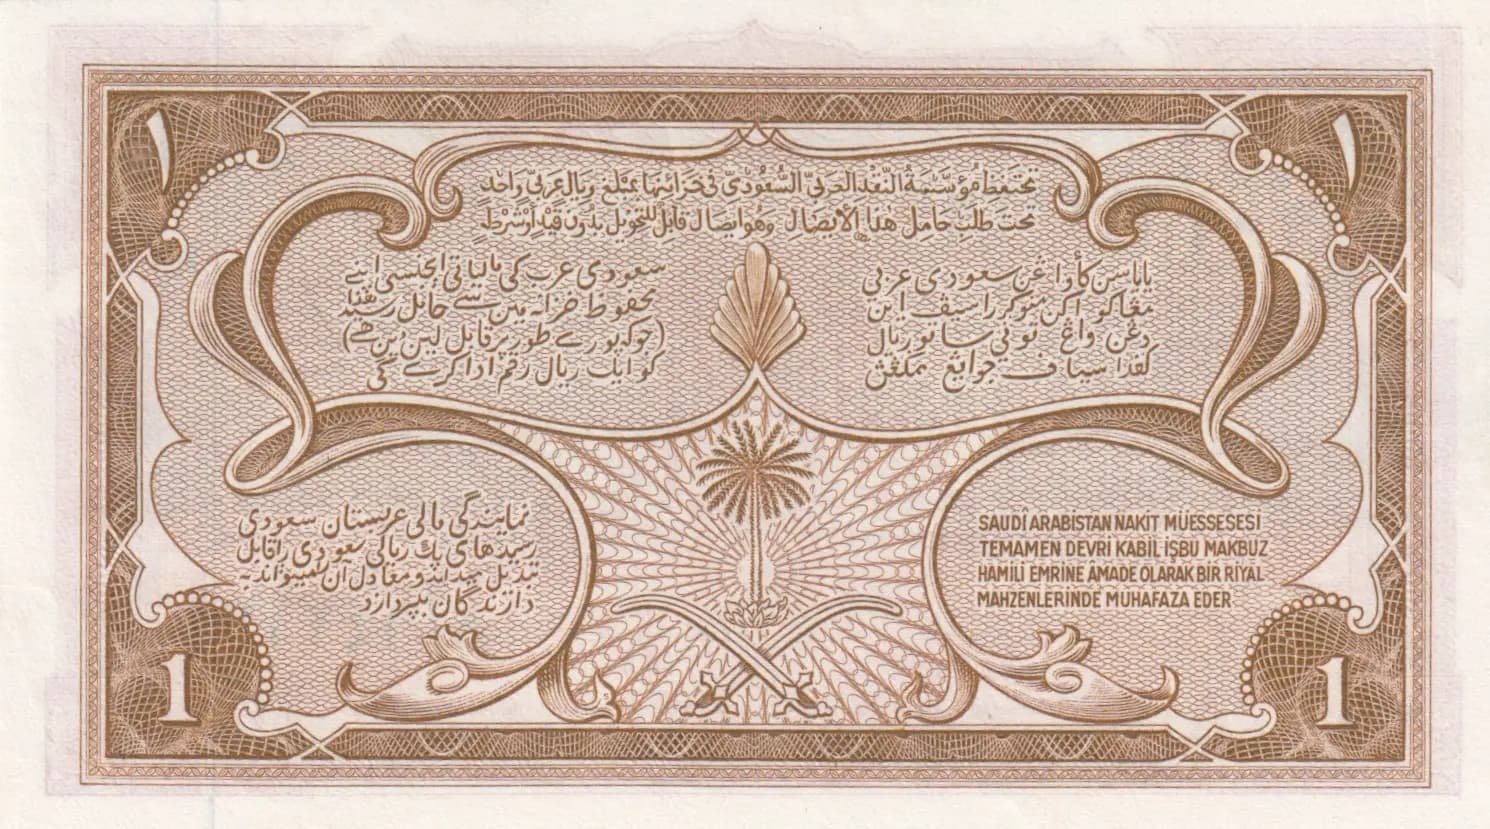 ١
١
تحتفظ مؤسسة النقد العربي السعودي في خزائنها بمبلغ ريال عربي واحد
تحت طلب حامل هذا الإيصال وهو إيصال قابل للتحويل بدون قيد أو شرط
سعودی عرب کی مالیاتی ایجنسی اپنے
محفوظ خزانہ میں سے حامل رسید ھذا
(جو کہ پورے طور پر قابل لین دین ھے)
کو ایک ریال رقم ادا کرے گی
سعودي عربي
ريال
نمایندگی مالی عربستان سعودی
رسیدهای یک ریالی سعودی را قابل
تبدیل میداند و معادل آن
دارندگان بپردازد
SAUDÎ ARABİSTAN NAKİT MÜESSESESİ
TEMAMEN DEVRİ KABİL İŞBU MAKBUZ
HAMİLİ EMRİNE ÂMADE OLARAK BİR RİYAL
MAHZENLERİNDE MUHAFAZA EDER
1
1